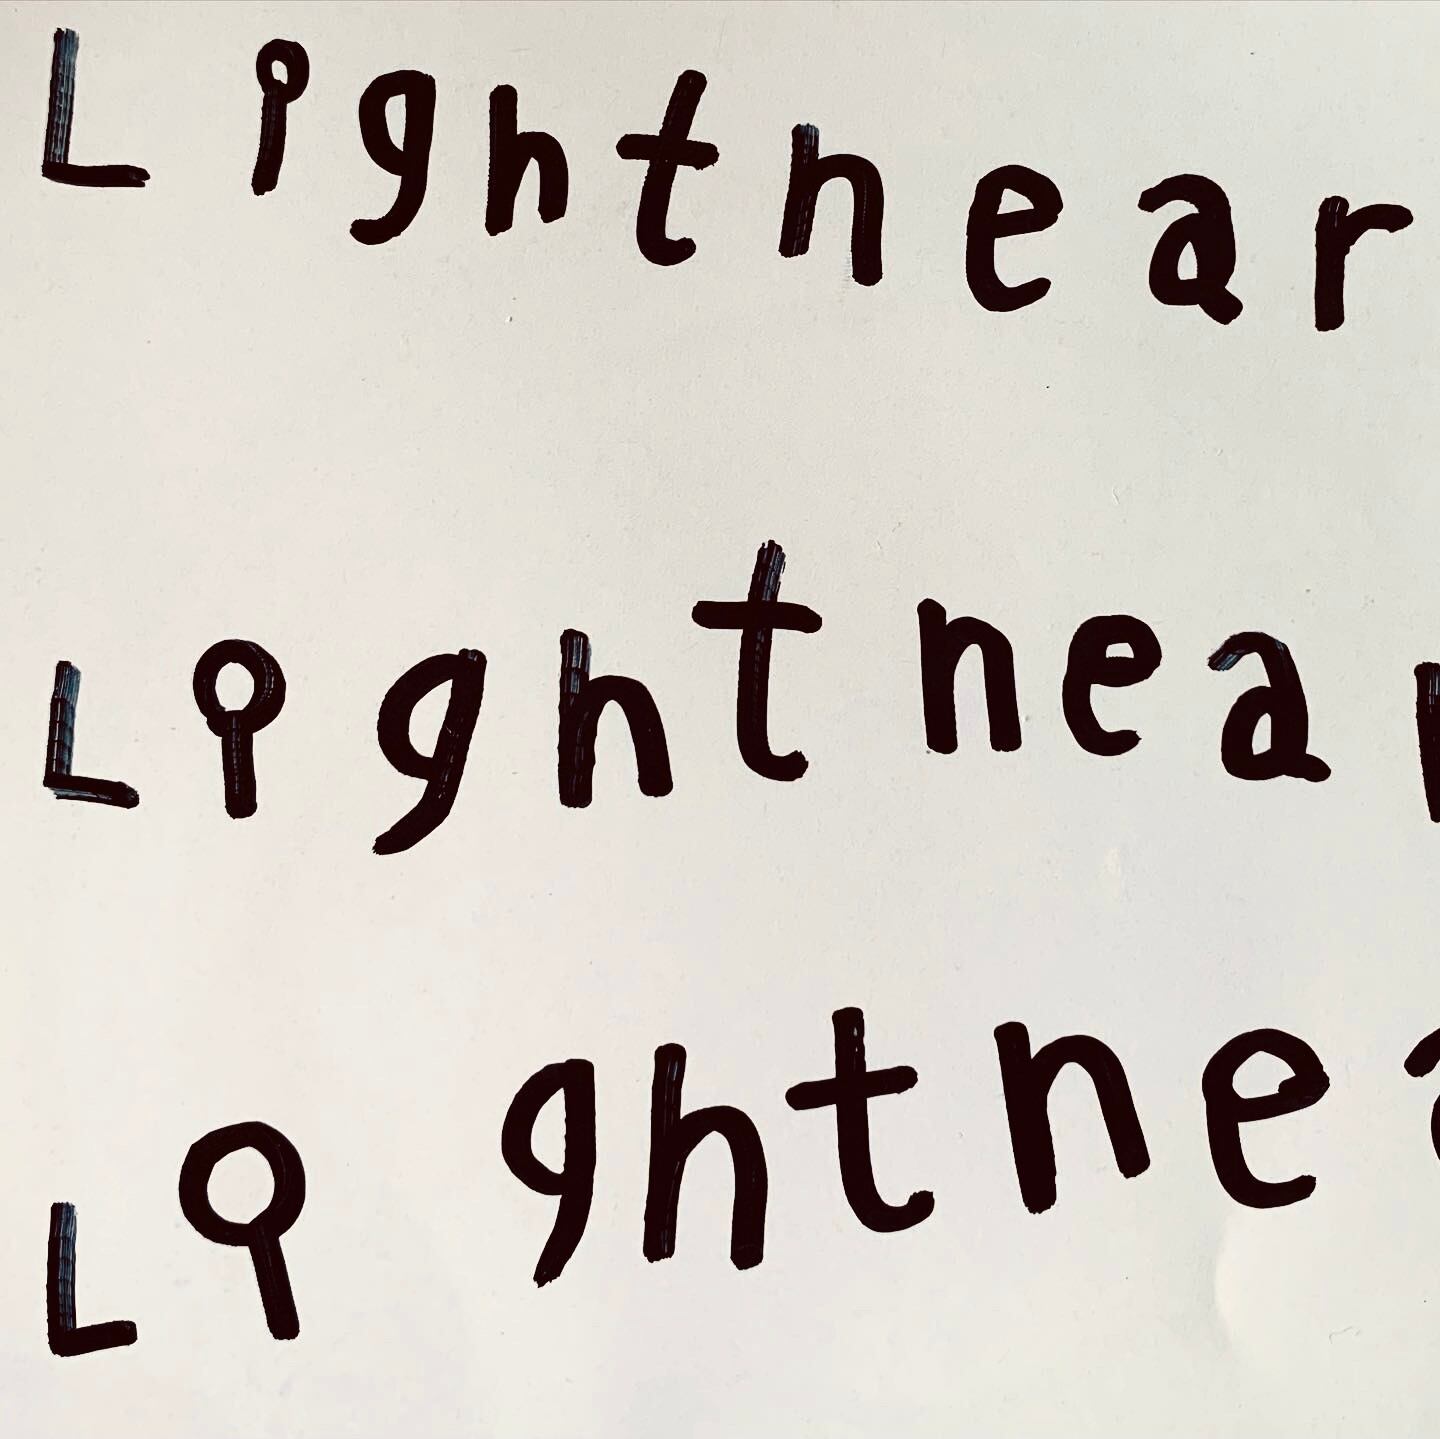 Lightnear
Lightnear
Lightnea